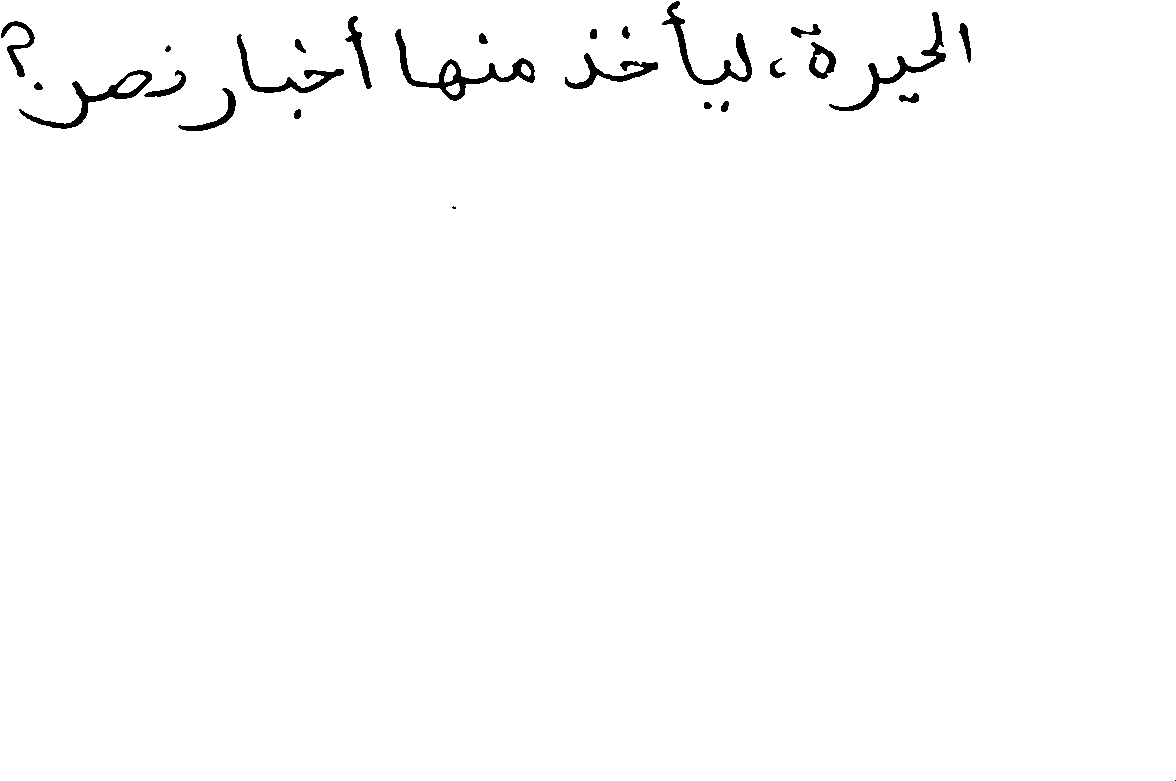 الحيرة، ليأخذ منها أخبار نصر؟